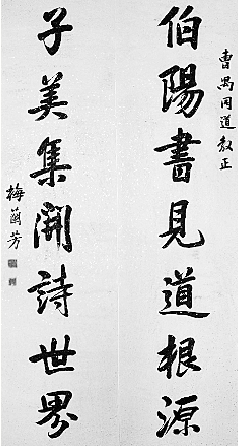 曹禺同道教正
伯陽書見道根源
子美集開詩世界
梅蘭芳